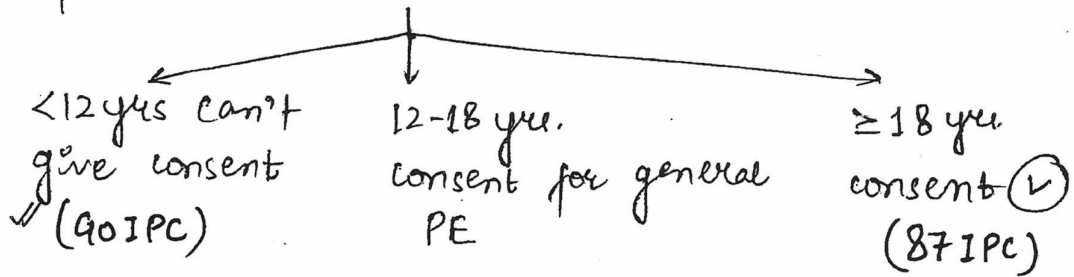 <12 yrs can't
give consent
(90 IPC)
12-18 yrs.
consent for general
PE
≥18 yrs
consent ✓
(87 IPC)